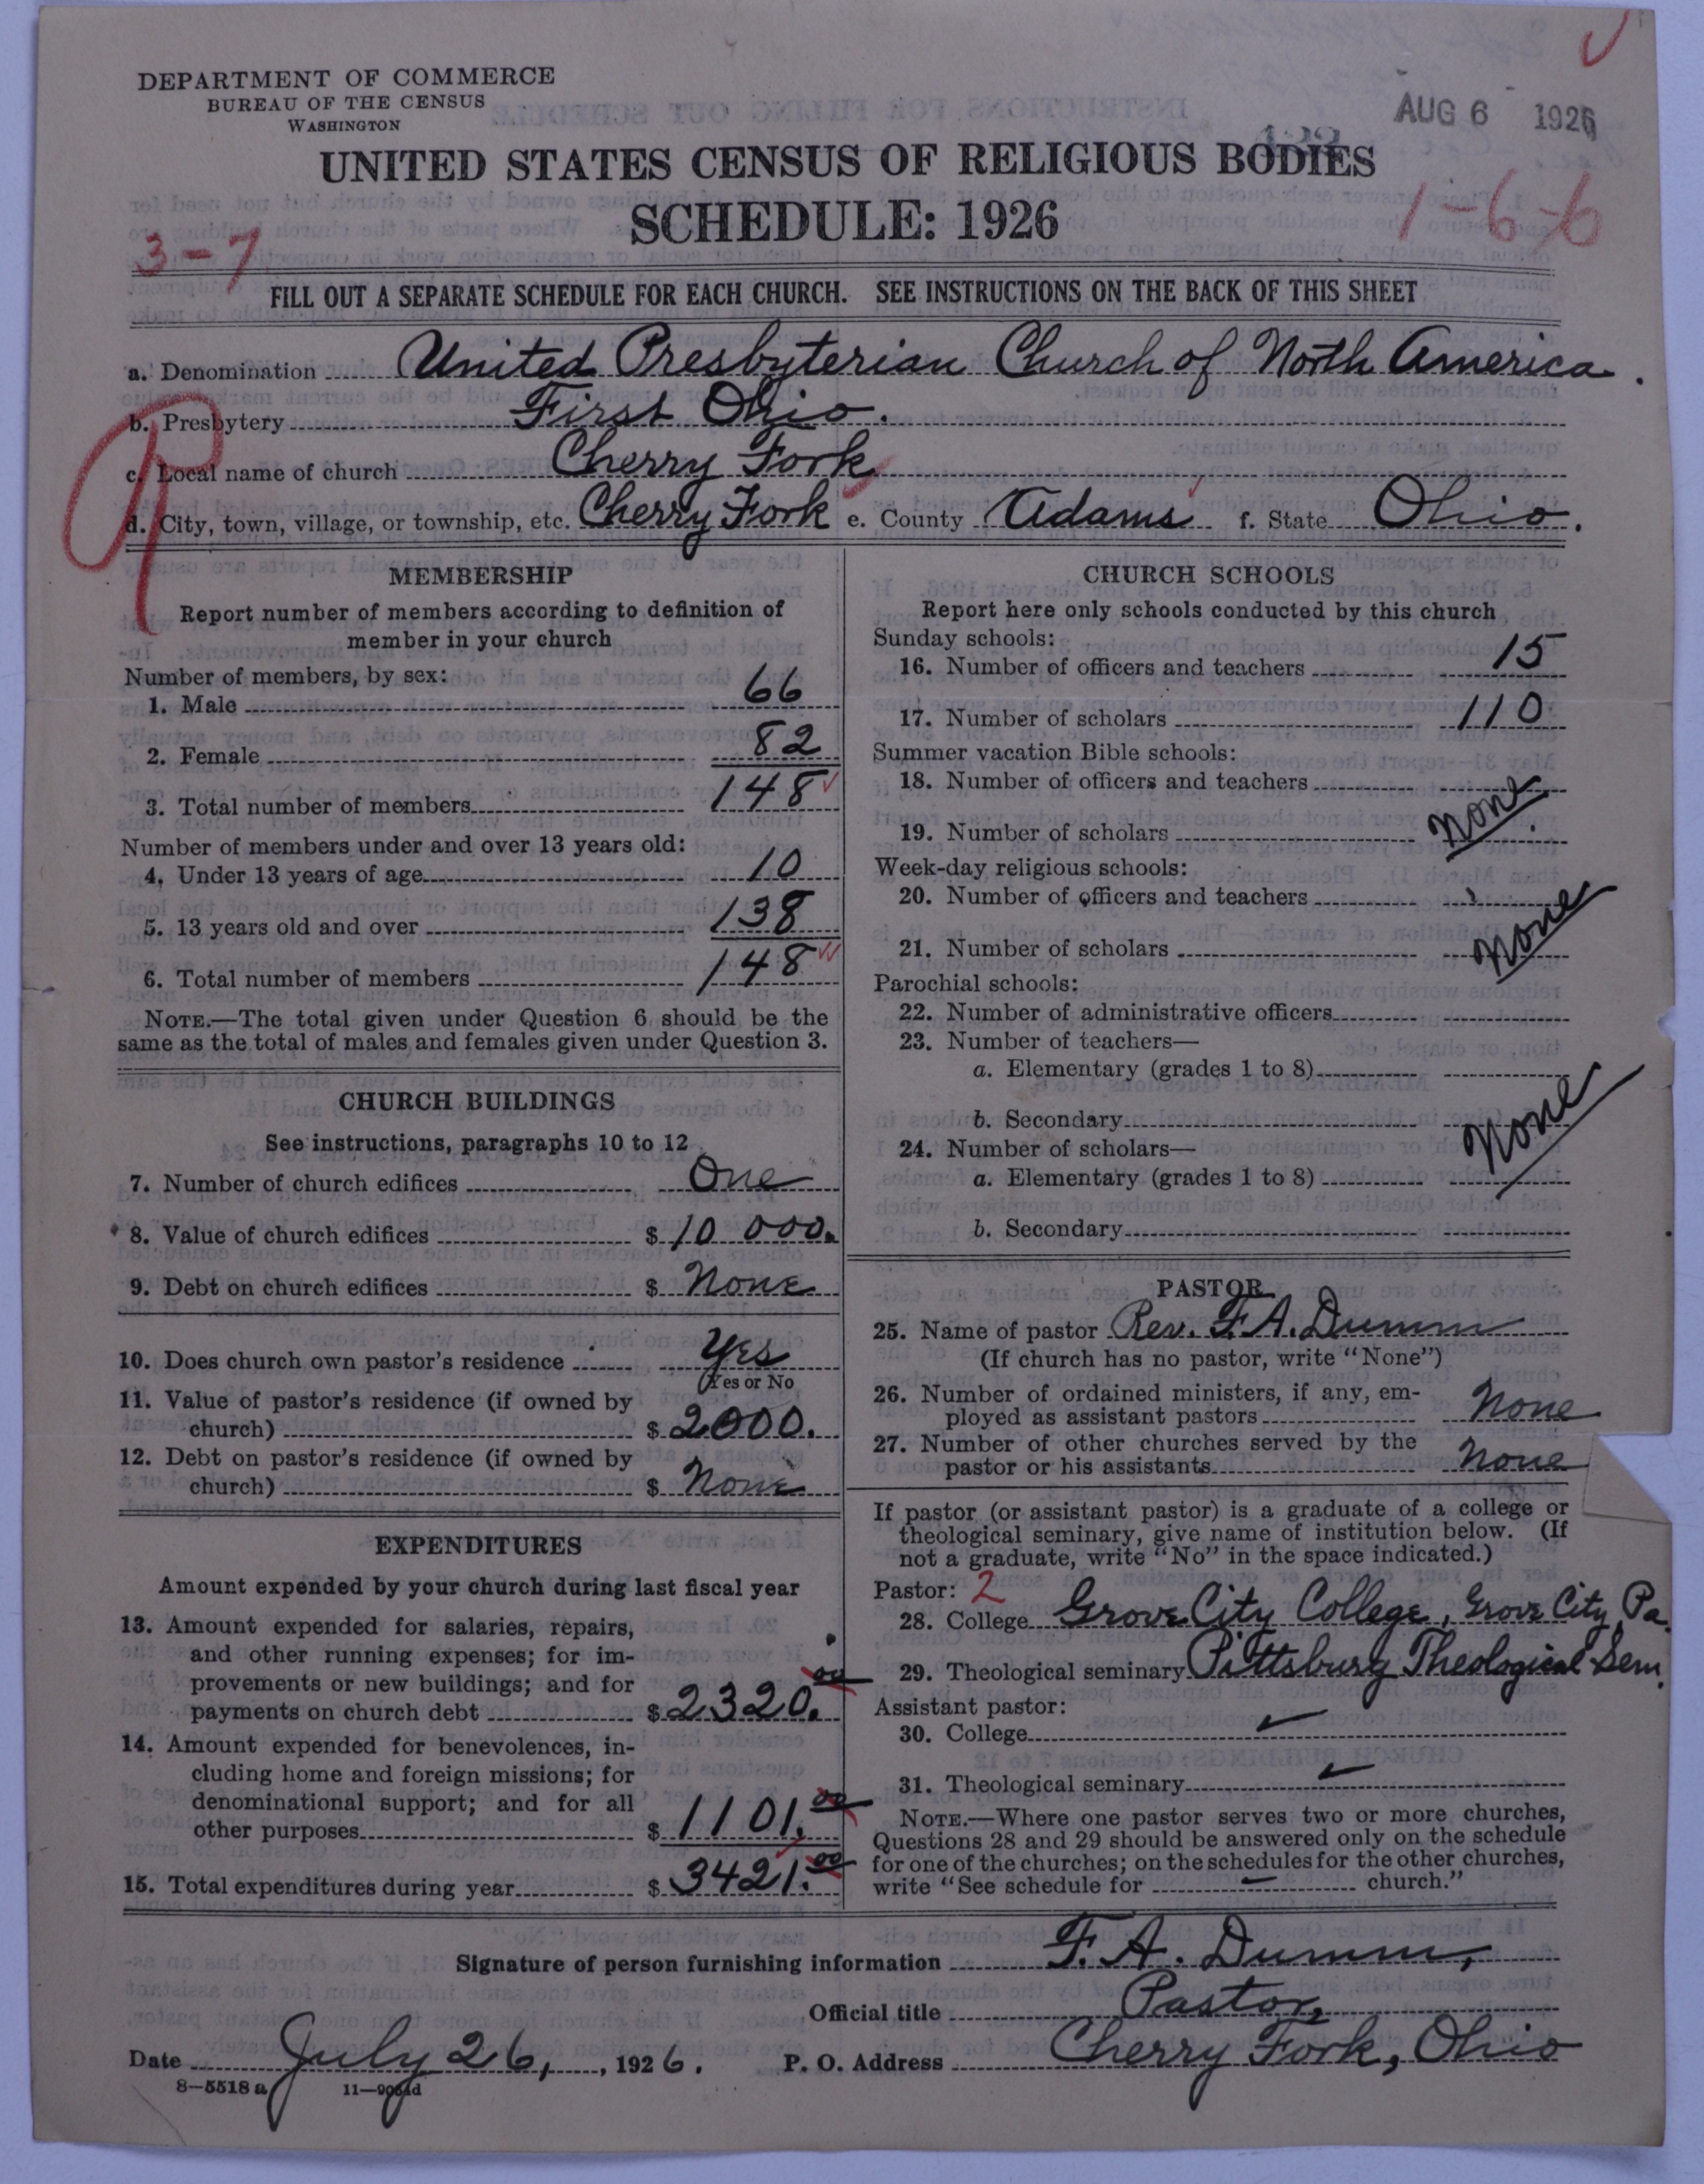 DEPARTMENT OF COMMERCE
BUREAU OF THE CENSUS
WASHINGTON
AUG 6 1926
UNITED STATES CENSUS OF RELIGIOUS BODIES
SCHEDULE: 1926
1-6-6
3-7
FILL OUT A SEPARATE SCHEDULE FOR EACH CHURCH. SEE INSTRUCTIONS ON THE BACK OF THIS SHEET
a. Denomination United Presbyterian Church of North America.
b. Presbytery First Ohio.
c. Local name of church Cherry Fork
d. City, town, village, or township, etc. Cherry Fork e. County Adams f. State Ohio.
R
MEMBERSHIP
Report number of members according to definition of
member in your church
Number of members, by sex:
1. Male 66
2. Female 82
3. Total number of members 148
Number of members under and over 13 years old:
4. Under 13 years of age 10
5. 13 years old and over 138
6. Total number of members 148
NOTE.—The total given under Question 6 should be the
same as the total of males and females given under Question 3.
CHURCH BUILDINGS
See instructions, paragraphs 10 to 12
7. Number of church edifices One
8. Value of church edifices $ 10 000.
9. Debt on church edifices $ None
10. Does church own pastor's residence Yes
(Yes or No
11. Value of pastor's residence (if owned by
church) $ 2000.
12. Debt on pastor's residence (if owned by
church) $ None
EXPENDITURES
Amount expended by your church during last fiscal year
13. Amount expended for salaries, repairs,
and other running expenses; for im-
provements or new buildings; and for
payments on church debt $ 2320.00
14. Amount expended for benevolences, in-
cluding home and foreign missions; for
denominational support; and for all
other purposes $ 1101.00
15. Total expenditures during year $ 3421.00
CHURCH SCHOOLS
Report here only schools conducted by this church
Sunday schools:
16. Number of officers and teachers 15
17. Number of scholars 110
Summer vacation Bible schools:
18. Number of officers and teachers
19. Number of scholars None.
Week-day religious schools:
20. Number of officers and teachers
21. Number of scholars None
Parochial schools:
22. Number of administrative officers
23. Number of teachers—
a. Elementary (grades 1 to 8)
b. Secondary None
24. Number of scholars—
a. Elementary (grades 1 to 8)
b. Secondary
PASTOR
25. Name of pastor Rev. F. A. Dumm
(If church has no pastor, write "None")
26. Number of ordained ministers, if any, em-
ployed as assistant pastors None
27. Number of other churches served by the
pastor or his assistants None
If pastor (or assistant pastor) is a graduate of a college or
theological seminary, give name of institution below. (If
not a graduate, write "No" in the space indicated.)
Pastor: 2
28. College Grove City College, Grove City Pa
29. Theological seminary Pittsburg Theological Sem.
Assistant pastor:
30. College
31. Theological seminary
NOTE.—Where one pastor serves two or more churches,
Questions 28 and 29 should be answered only on the schedule
for one of the churches; on the schedules for the other churches,
write "See schedule for — church."
Signature of person furnishing information F. A. Dumm,
Official title Pastor,
Date July 26, , 1926. P. O. Address Cherry Fork, Ohio
8—5518 a 11—9064d